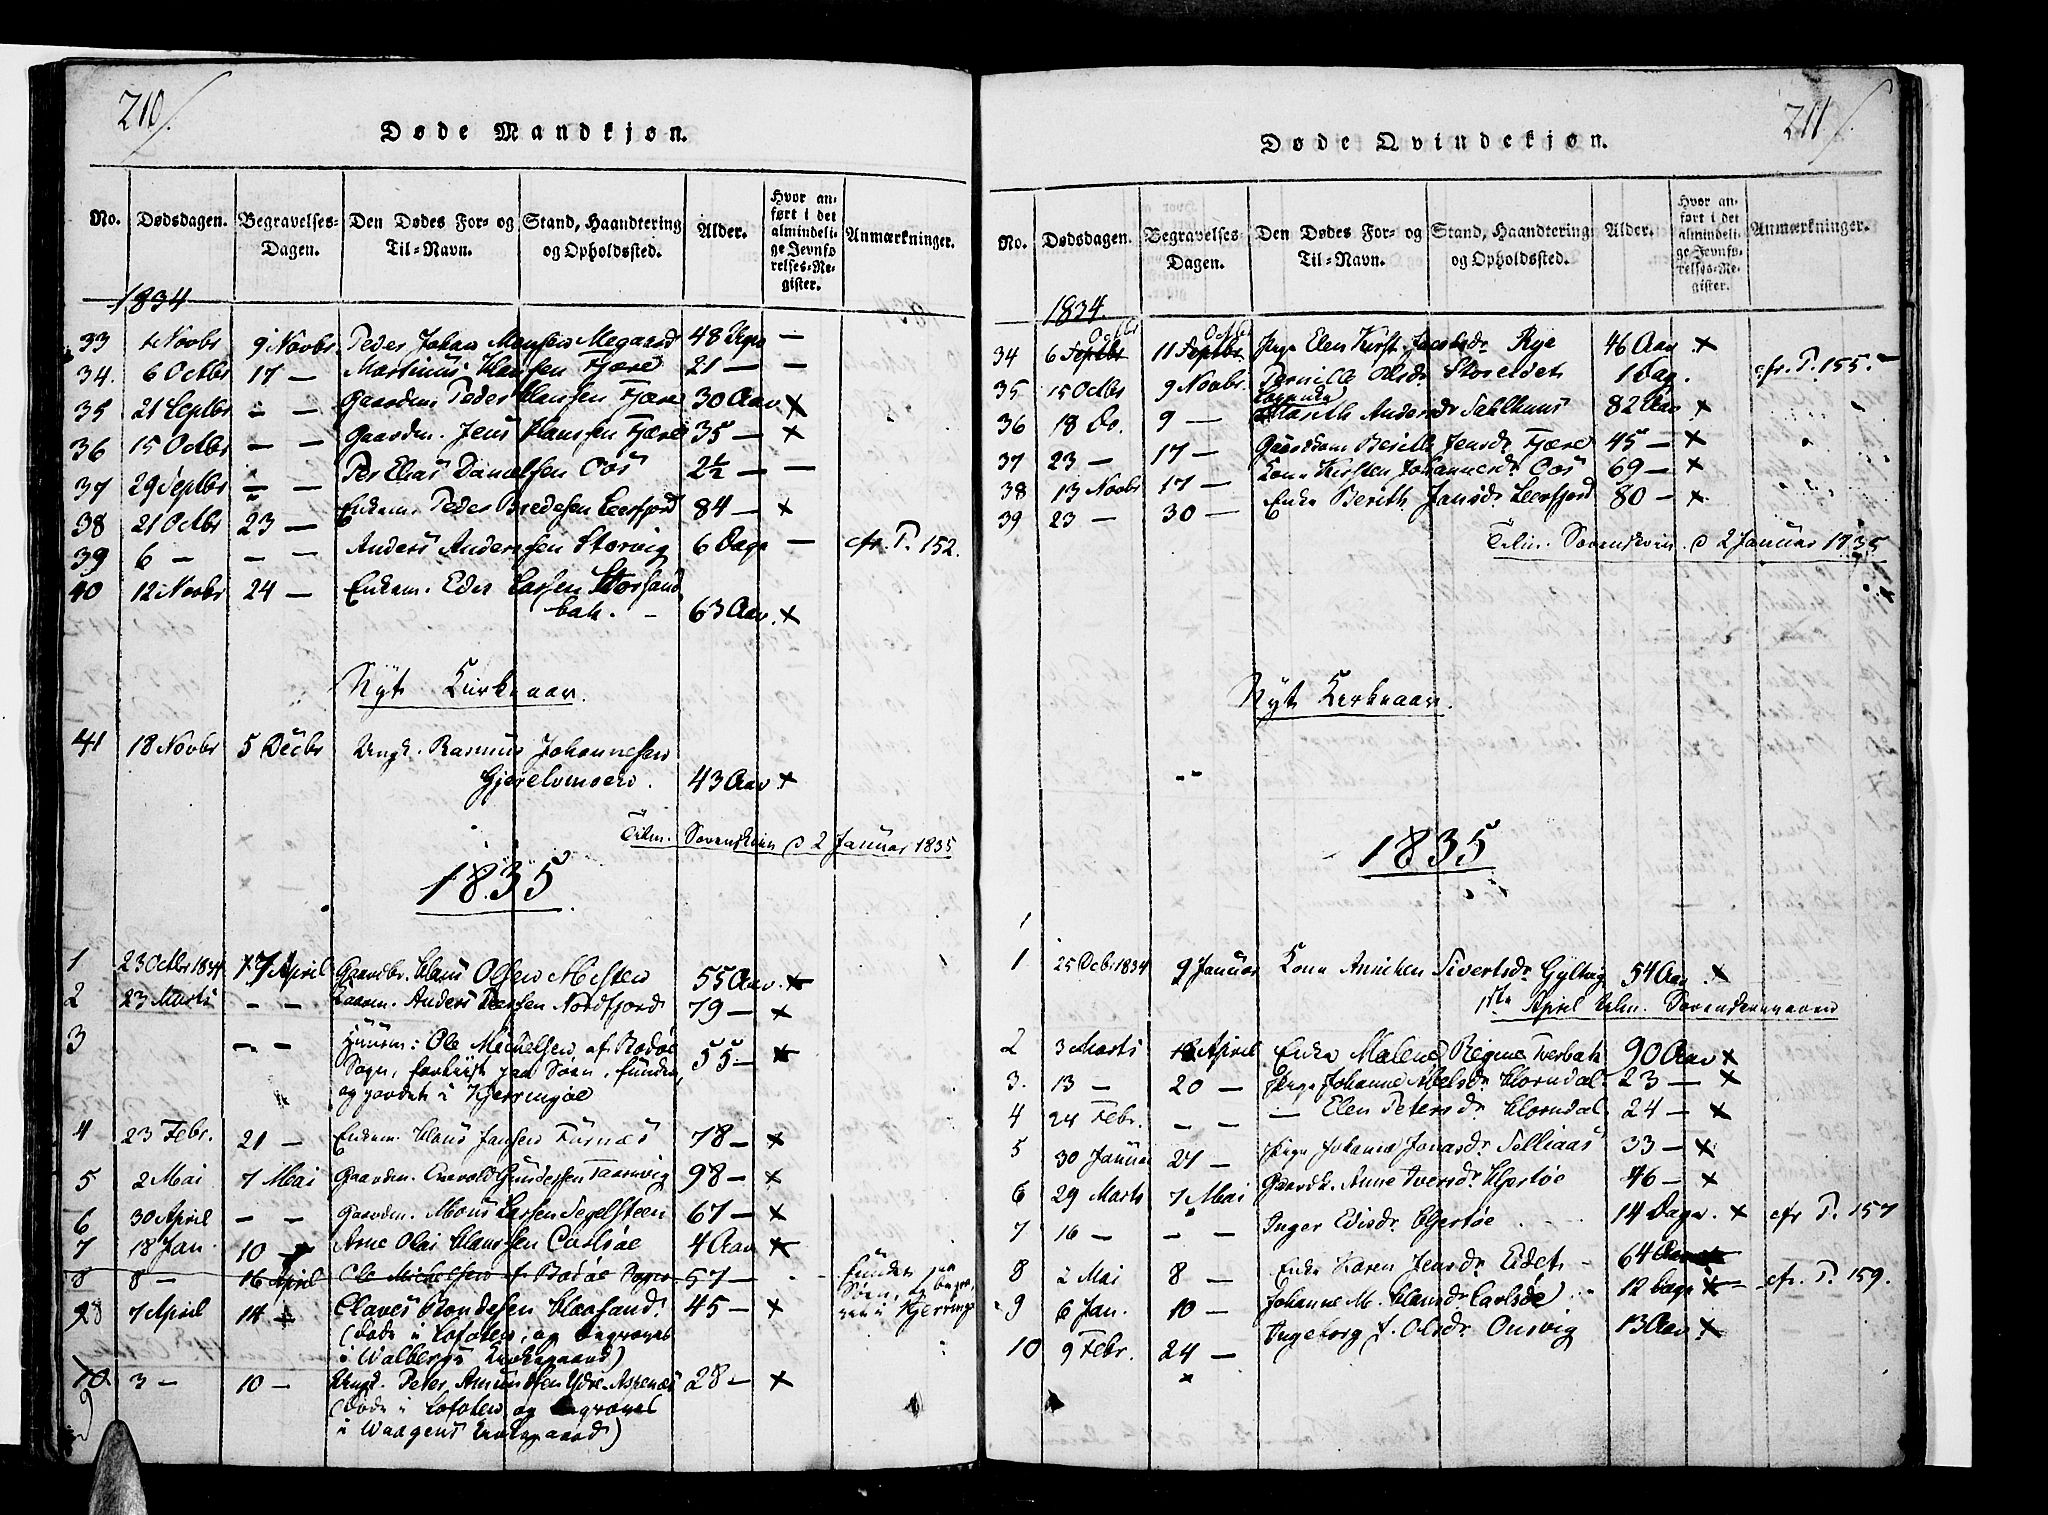 210.
Døde Mandkjøn.
No. Dødsdagen. Begravelses-Dagen. Den Dødes For- og Til-Navn. Stand, Haandtering og Opholdssted. Alder. Hvor anført i det almindelige Jevnførelses-Register. Anmærkninger.
1834
33 4 Novbr 9 Novbr Peder Johan Monsen Megaard 48 Uger —
34. 6 Octbr 17 — Martinus Hansen Fjære 21 — —
35 21 Septbr — — Gaardm. Peder Hansen Fjære 30 Aar ×
36 15 Octbr — — Gaardm. Jens Hansen Fjære 35 — ×
37 29 Septbr — — Per Elias Danielsen Oos 2½ — —
38 21 Octbr 23 — Enkem. Peder Bredesen Leerfjord 84 — ×
39 6 — — — Anders Andersen Storvig 6 Dage — cfr. P. 152.
40 12 Novbr 24 — Enkem. Peder Larsen Storsand
bak. - 63 Aar ×
Nyt Kirkeaar.
41 18 Novbr 5 Decbr Ungk. Rasmus Johannesen
Gjerelvmoen. 43 Aar ×
Tilm. Sorenskriv. d 2 Januar 1835
1835
1 23 Octbr 1834 17 April Gaardbr. Claus Olsen Misten 55 Aar. ×
2 23 Marts — — Anders Nordfjord 79 — ×
3 — — Huusm: Ole Michelsen af Bodøe 55 — ×
Sogn, forliist paa Søen, funden,
og jordet i Kjerringøe
4 23 Febr. 21 — Enkem. Claus Jansen Furnæs 78 — ×
5 2 Mai 7 Mai Gaardm. Gundersen Taarnvig 98 — ×
6 30 April — — Gaardm. Mons Larsen Segelsteen 67 — ×
7 18 Jan. 10 — Arne Olai Claussen Carlsøe 4 Aar ×
8 8 — 16 April Ole Michelsen af Bodøe Sogn 57 — funden paa
Søen, og begra-
vet i Kjerringø
98 7 April 14 — Claves 45 — ×
(Døde i Lofoten, og begravet
i Walbergs Kirkegaard)
10 9 3 — 10 — Ungd. Peter Amundsen Ydre Aspenæs 28 — ×
(Døde i Lofoten og begravet
i Waagens Kirkegaard)
211.
Døde Qvindekjøn.
No. Dødsdagen. Begravelses Dagen. Den Dødes For- og Til-Navn. Stand, Haandtering og Opholdssted. Alder. Hvor anført i det almindelige Jevnførelses-Register. Anmærkninger.
1834
34 6 Septbr Octbr 11 Septbr Octbr Pige Elen Kirst. Jacobsdr Rye 46 Aar ×
35 15 Octbr 9 Novbr. Pernille Olsdr Storeidet 1 Dag. cfr. P. 155.
36 18 Do. 9 — Marith Andersdr Sahlhuus 82 Aar ×
37 23 — 17 — Berith Jensdr Fjære 45 — ×
38 13 Novbr 17 — Kone Kirsten Johannesdr Oos 69 — ×
39 23 — 30 — Enke Berith Jansdr Leerfjord 80 — ×
Tilm. Sorenskriv. d 2 Januar 1835
Nyt Kirkeaar.
1835
1 25 Decbr 1834 9 Januar Kone Anniken Sivertsdr Gyltvig 54 Aar ×
1ste April tilm. Sorenskriveren
2 3 Marts 18 April Enke Malene Regine Tverbak 90 Aar ×
3. 13 — 20 — Pige Johanne Nielsdr Horndal 23 — ×
4 24 Febr. — — — Elen Petersdr Horndal 24 — ×
5 30 Januar 27 — Pige Johanne Jonasdr Selliaas 33 — ×
6 29 Marts 7 Mai Gaardk. Anne Iversdr Hjertøe 46 — ×
7 16 — — — Inger Edisdr Hjertøe 14 Dage. × cfr P. 157
8 2 Mai 8 — Enke Karen Jensdr Eidet 64 Aar
9 6 Jan. 10 — Johanne M. Clausdr Carlsøe 12 Dage × cfr. P. 159.
10 9 Febr. 24 — Ingeborg J. Olsdr Onsvig 13 Aar ×